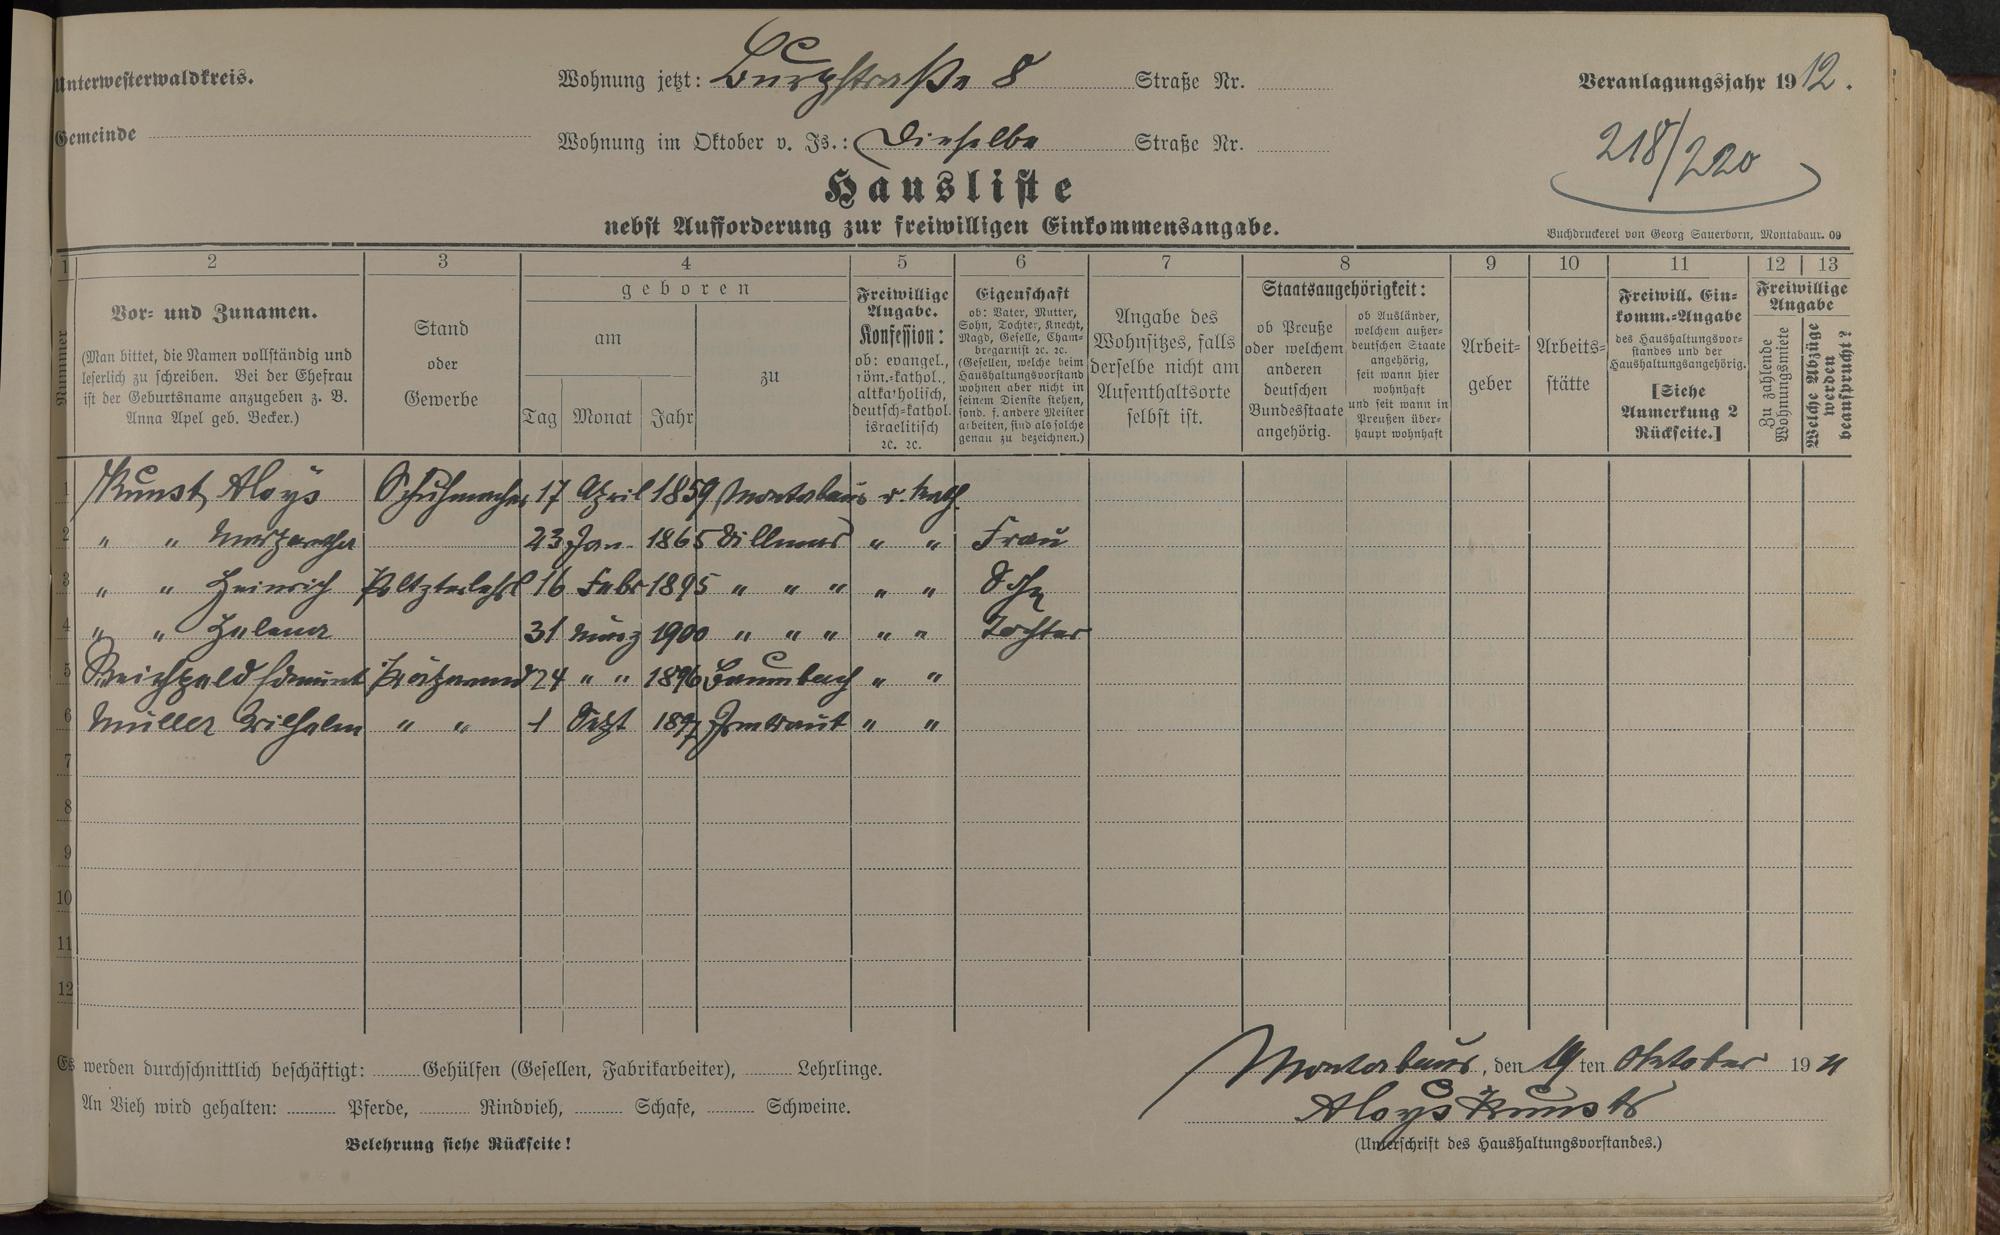 Unterwesterwaldkreis.
Wohnung jetzt: Burgstraße 8 Straße Nr.
Veranlagungsjahr 1912.
Gemeinde
Wohnung im Oktober v. Js.: Dieselbe Straße Nr.
218/220
Hausliste
nebst Aufforderung zur freiwilligen Einkommensangabe.
Buchdruckerei von Georg Sauerborn, Montabaur. 09
1 2 3 4 5 6 7 8 9 10 11 12 13
Nummer
Vor- und Zunamen.
(Man bittet, die Namen vollständig und
leserlich zu schreiben. Bei der Ehefrau
ist der Geburtsname anzugeben z. B.
Anna Apel geb. Becker.)
Stand
oder
Gewerbe
geboren
am
zu
Tag Monat Jahr
Freiwillige
Angabe.
Konfession:
ob: evangel.,
röm.-kathol.,
altkatholisch,
deutsch-kathol.
israelitisch
ꝛc. ꝛc.
Eigenschaft
ob: Vater, Mutter,
Sohn, Tochter, Knecht,
Magd, Geselle, Cham-
bregarnist ꝛc. ꝛc.
(Gesellen, welche beim
Haushaltungsvorstand
wohnen aber nicht in
seinem Dienste stehen,
sond. f. andere Meister
arbeiten, sind als solche
genau zu bezeichnen.)
Angabe des
Wohnsitzes, falls
derselbe nicht am
Aufenthaltsorte
selbst ist.
Staatsangehörigkeit:
ob Preuße
oder welchem
anderen
deutschen
Bundesstaate
angehörig.
ob Ausländer,
welchem außer-
deutschen Staate
angehörig,
seit wann hier
wohnhaft
und seit wann in
Preußen über-
haupt wohnhaft
Arbeit-
geber
Arbeits-
stätte
Freiwill. Ein-
komm.-Angabe
des Haushaltungsvor-
standes und der
Haushaltungsangehörig.
[Siehe
Anmerkung 2
Rückseite.]
Freiwillige
Angabe
Zu zahlende
Wohnungsmiete
Welche Abzüge
werden
beansprucht?
1 Kunst Aloys Schuhmacher 17 April 1859 Montabaur r. kath.
2 " " Margaretha 23 Jan. 1865 Dillmar " " Frau
3 " " Heinrich 16 Febr 1895 " " " " " Sohn
4 " " Helena 31 März 1900 " " " " " Tochter
5 Edmund Präparand 24 " " 1896 Baumbach " "
6 Müller Wilhelm " " 1 Sept 1897 Irmtraut " "
7
8
9
10
11
12
Es werden durchschnittlich beschäftigt: Gehülfen (Gesellen, Fabrikarbeiter), Lehrlinge.
An Vieh wird gehalten: Pferde, Rindvieh, Schafe, Schweine.
Belehrung siehe Rückseite!
Montabaur, den 19ten Oktober 1911
Aloys Kunst
(Unterschrift des Haushaltungsvorstandes.)